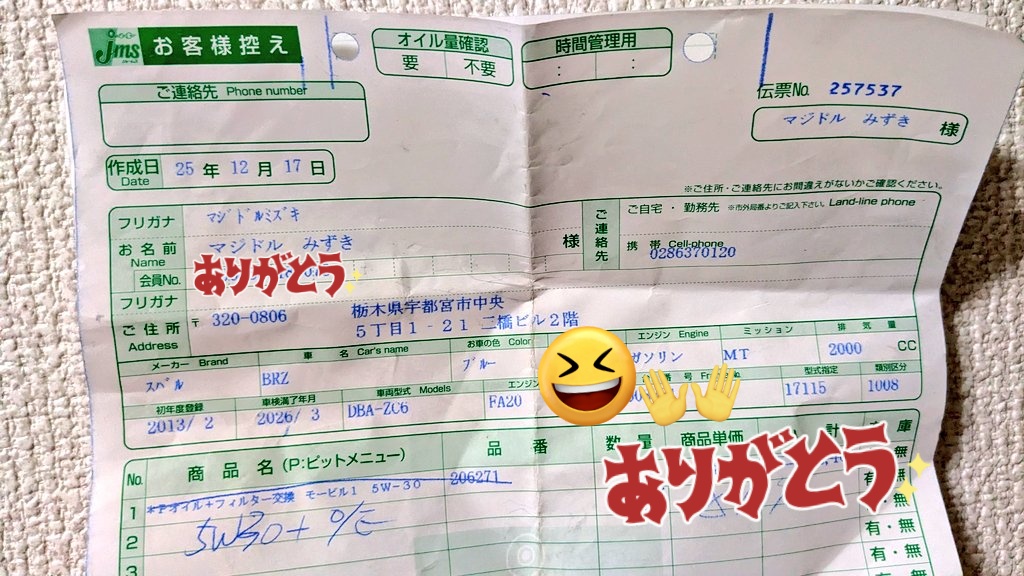 jms お客様控え
オイル量確認
要 不要
時間管理用
: :
ご連絡先 Phone number
伝票No. 257537
マジドル みずき 様
作成日 Date 25 年 12 月 17 日
※ご住所・ご連絡先にお間違えがないかご確認ください。
フリガナ マジドルミズキ
お名前 Name マジドル みずき 様
会員No.
ありがとう
ご連絡先
ご自宅・勤務先 ※市外局番よりご記入下さい。 Land-line phone
携帯 Cell-phone
0286370120
フリガナ
ご住所 Address 〒 320-0806 栃木県宇都宮市中央
5丁目1-21 二橋ビル2階
メーカー Brand 車名 Car's name お車の色 Color エンジン Engine ミッション 排気量
スバル BRZ ブルー ガソリン MT 2000 CC
初年度登録 車検満了年月 車両型式 Models 型式指定 類別区分
2013/ 2 2026/ 3 DBA-ZC6 FA20 17115 1008
No. 商品名 (P:ピットメニュー) 品番 数量 商品単価 計 庫
1 *Pオイル+フィルター交換 モービル1 5W-30 206271 有・無
ありがとう
2 5W30+ O/E 有・無
3 有・無
有・無